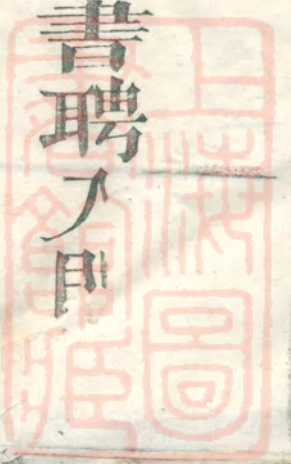 書聘入門
上海圖
書館藏